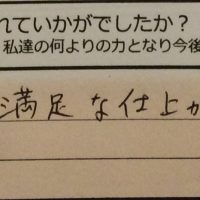 れていかがでしたか？
私達の何よりの力となり今後
満足な仕上か